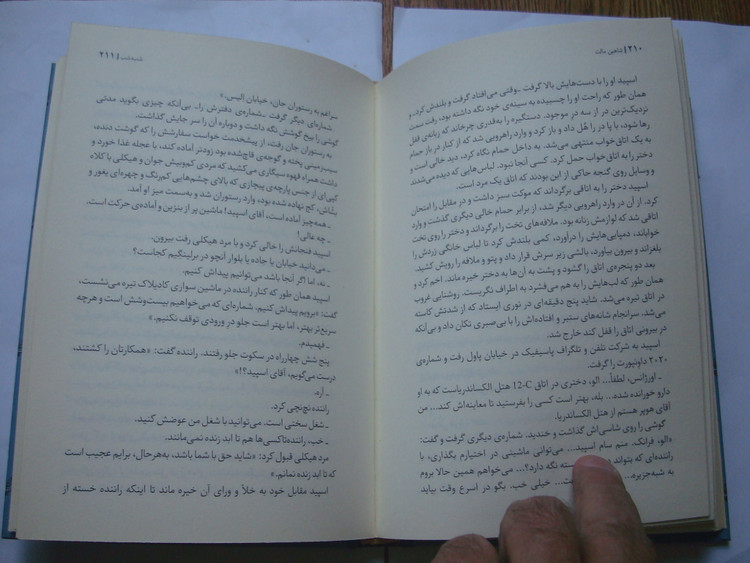 ۲۱۰ | شاهین مالت
اسپید او را با دست‌هایش بالا گرفت ـ وقتی می‌افتاد گرفت و بلندش کرد، و
همان طور که راحت او را چسبیده به سینه‌ی خود نگه داشته بود، رفت سمت
نزدیک‌ترین در از سه در موجود. دستگیره را به‌قدری چرخاند که زبانه‌ی قفل
رها شود، با پا در را هُل داد و باز کرد و وارد راهرویی شد که از کنار در باز حمام
به یک اتاق‌خواب منتهی می‌شد. به داخل حمام نگاه کرد، دید خالی است و
دختر را به اتاق‌خواب حمل کرد. کسی آنجا نبود. لباس‌هایی که دیده می‌شدند
و وسایل روی گنجه حاکی از این بودند که اتاق یک مرد است.
اسپید دختر را به اتاقی برگرداند که موکت سبز داشت و در مقابل را امتحان
کرد. از آن در وارد راهرویی دیگر شد، از برابر حمام خالی دیگری گذشت و وارد
اتاقی شد که لوازمش زنانه بود. ملافه‌های تخت را برگرداند و دختر را روی تخت
خواباند، دمپایی‌هایش را درآورد، کمی بلندش کرد تا لباس خانگی زردش را
بلغزاند و بیرون بیاورد، بالشی زیر سرش قرار داد و پتو و ملافه را رویش کشید.
بعد دو پنجره‌ی اتاق را گشود و پشت به آن‌ها به دختر خیره ماند. اخم کرد و
همان طور که لب‌هایش را به هم می‌فشرد به اطراف نگریست. روشنایی غروب
در اتاق تیره می‌شد. شاید پنج دقیقه‌ای در نوری ایستاد که از شدتش کاسته
می‌شد. سرانجام شانه‌های ستبر و افتاده‌اش را با بی‌صبری تکان داد و بی‌آنکه
در بیرونی اتاق را قفل کند خارج شد.
اسپید به شرکت تلفن و تلگراف پاسیفیک در خیابان پاول رفت و شماره‌ی
۲۰۲۰ داونپورت را گرفت.
ـ اورژانس، لطفاً... الو، دختری در اتاق 12-C هتل الکساندریاست که به او
دارو خورانده شده... بله، بهتر است کسی را بفرستید تا معاینه‌اش کند... من
آقای هوپر هستم از هتل الکساندریا.
گوشی را روی شاسی‌اش گذاشت و خندید. شماره‌ی دیگری گرفت و گفت:
«الو، فرانک. منم سام اسپید... می‌توانی ماشینی در اختیارم بگذاری، با
راننده‌ای که بتواند بسته نگه دارد؟... می‌خواهم همین حالا بروم
به شبه‌جزیره... خیلی خب. بگو در اسرع وقت بیاید
شنبه‌شب | ۲۱۱
سراغم به رستوران جان، خیابان اِلیس.»
شماره‌ی دیگر گرفت ـ شماره‌ی دفترش را ـ بی‌آنکه چیزی بگوید مدتی
گوشی را بیخ گوشش نگه داشت و دوباره آن را سر جایش گذاشت.
به رستوران جان رفت، از پیشخدمت خواست سفارشش را که گوشت دنده،
سیب‌زمینی پخته و گوجه‌ی قاچ‌شده بود زودتر آماده کند، با عجله غذا خورد و
داشت همراه قهوه سیگاری می‌کشید که مردی کم‌وبیش جوان و هیکلی با کلاه
کپی‌ای از جنس پارچه‌ی پیچازی که بالای چشم‌هایی کم‌رنگ و چهره‌ای پفور و
بشاش، کج نهاده شده بود، وارد رستوران شد و به‌سمت میز او آمد.
ـ همه‌چیز آماده است، آقای اسپید! ماشین پر از بنزین و آماده‌ی حرکت است.
ـ چه عالی!
اسپید فنجانش را خالی کرد و با مرد هیکلی رفت بیرون.
ـ می‌دانید خیابان یا جاده یا بلوار آنچو در برلینگیم کجاست؟
ـ نه، اما اگر آنجا باشد می‌توانیم پیداش کنیم.
اسپید همان طور که کنار راننده در ماشین سواری کادیلاک تیره می‌نشست،
گفت: «برویم پیداش کنیم. شماره‌ای که می‌خواهیم بیست‌وشش است و هرچه
سریع‌تر بهتر، اما بهتر است جلو در ورودی توقف نکنیم.»
ـ فهمیدم.
پنج شش چهارراه در سکوت جلو رفتند. راننده گفت: «همکارتان را کشتند،
درست می‌گویم، آقای اسپید؟!»
ـ آره.
راننده نچ‌نچی کرد.
ـ شغل سختی است. می‌توانید با شغل من عوضش کنید.
ـ خب، راننده‌تاکسی‌ها هم تا ابد زنده نمی‌مانند.
مرد هیکلی قبول کرد: «شاید حق با شما باشد، به‌هرحال، برایم عجیب است
که تا ابد زنده نمانم.»
اسپید مقابل خود به خلأ و ورای آن خیره ماند تا اینکه راننده خسته از